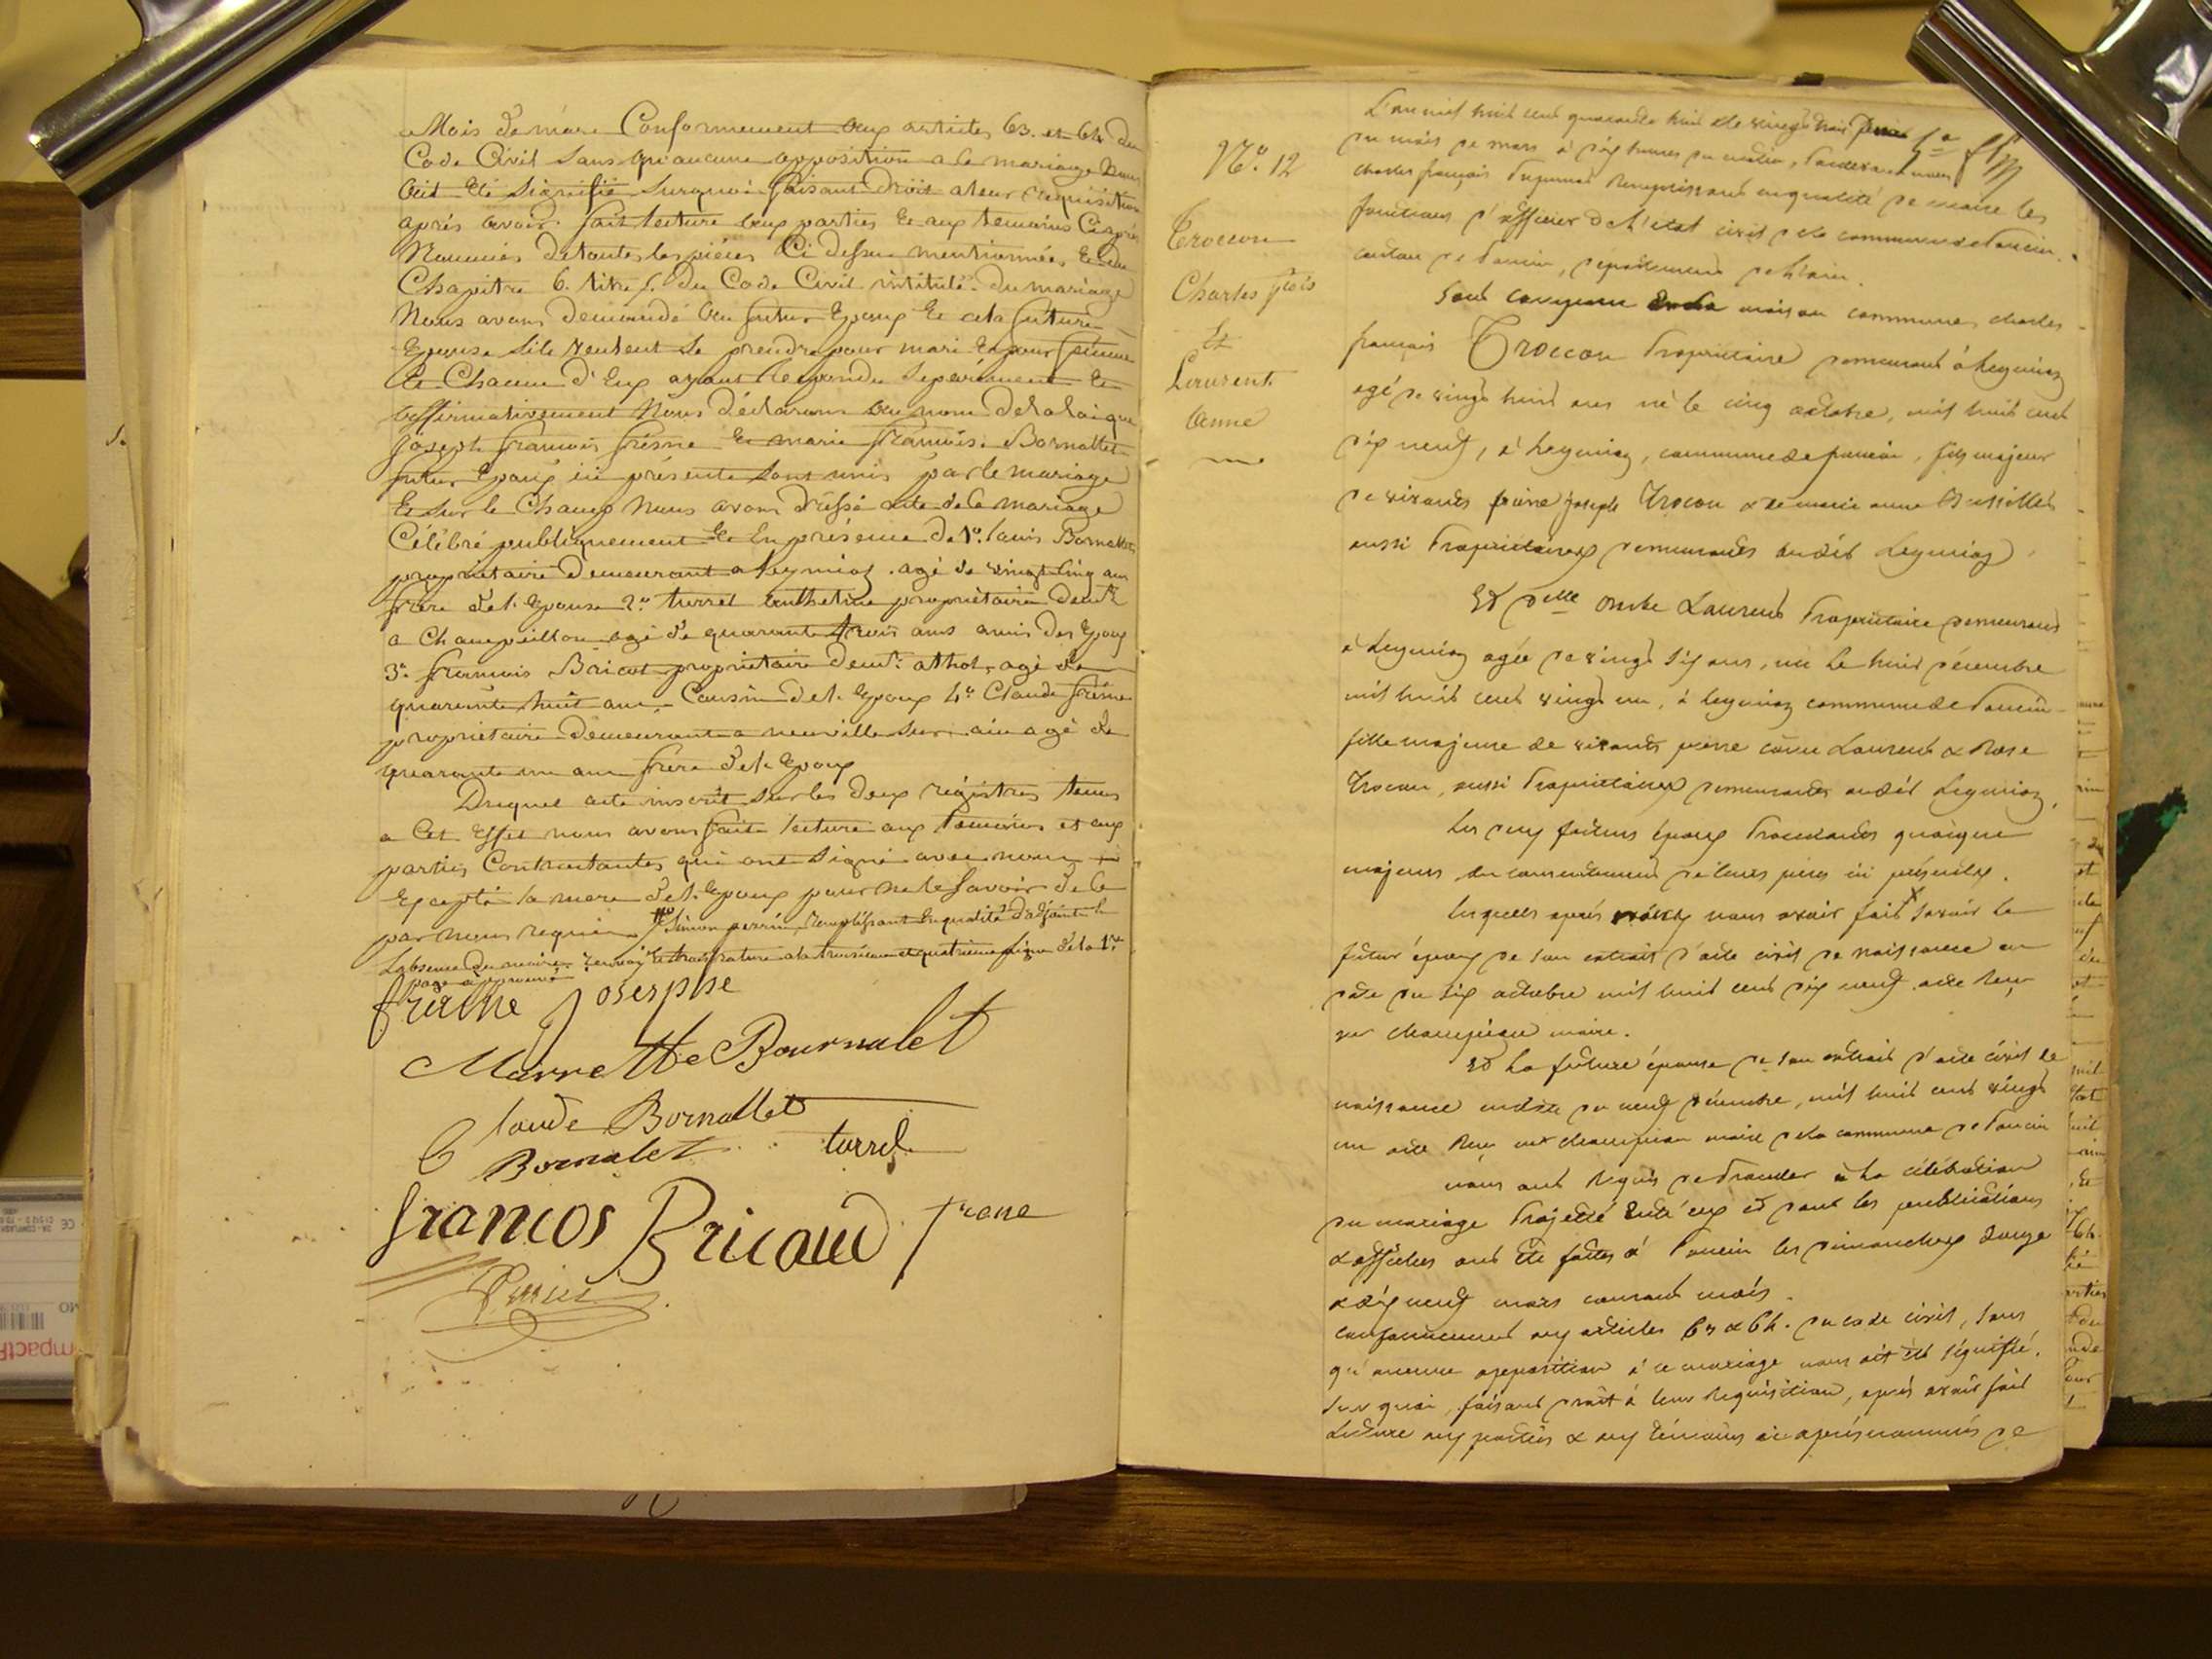 Mois de mars Conformement aux articles 63. et 64 du
Code Civil sans qu'aucune opposition a ce mariage Nous
ait été signifié surquoi faisant droit a leur requisition
après avoir fait lecture aux parties et aux temoins Ci après
Nommés de toutes les pièces Ci dessus mentionnées et du
Chapitre 6. titre 5. du Code Civil intitulé du mariage
Nous avons demandé au futur Epoux et a la future
Epouse s'ils veulent se prendre pour mari et pour femme
Et Chacun d'Eux ayant repondu separement Et
affirmativement Nous déclarons au nom de la loi que
joseph francois frésne et marie francoise Bornattet
futur Epoux ici présents sont unis par le mariage
Et sur le Champ Nous avons dréssé acte de ce mariage
Célébré publiquement Et En présence de 1º. louis Bornattet
propriétaire demeurant a leymiat agé de vingt cinq ans
frère de l'Epouse 2º. turrel anthelme propriétaire demt
a Champeillon agé de quarante trois ans amis des Epoux
3º. francois Bricot propriétaire demt. a thol, agé de
quarante huit ans Cousin de l'Epoux 4º Claude frésne
propriétaire demeurant a neuville sur ain agé de
quarante un ans frère de l'Epoux
Duquel acte inscrit sur les deux régistres tenus
a Cet Effet nous avons fait lecture aux témoins et aux
parties Contractantes qui ont signé avec nous
Excepté la mere de l'Epoux pour ne le savoir de ce
par nous requise simon perrin remplissant En qualité d'adjoint
L'absence du maire. renvoi Et a la troisieme et quatrieme ligne de la 1re
page approuvé
frérne Joserphe
Marrette Bournalet
Claude Bornattet
Bornalet turrel
francos Bricaud frene
Perrin
Nº. 12
Troccon
Charles fcois
Et
Laurent
anne
L'an mil huit cent quarante huit & le vingt trois
du mois de mars à dix heures du matin, pardevant nous
charles françois remplissant en qualité de maire les
fonctions d'officier de l'état civil de la commune de Poncin
canton de Poncin, département de l'Ain.
Sont comparu en la maison commune, charles
françois Troccon Propriétaire demeurant à Leymiaz
agé de vingt huit ans né le cinq octobre, mil huit cent
dix neuf, à Leymiaz, commune de poncin, fils majeur
de vivants pierre joseph Trocon & de marie anne
aussi Propriétaires demeurants audit Leymiaz.
Et delle Laurent Propriétaire demeurant
à Leymiaz agée de vingt six ans, née le huit décembre
mil huit cent vingt un, à leymiaz commune de Poncin
fille majeure de vivants pierre Laurent & Rose
Trocon, aussi Propriétaires demeurants audit Leymiaz,
Les deux futurs époux Procédants quoique
majeurs du consentement de leurs pères ici présents.
Lesquels après nous avoir fait savoir le
futur époux de son extrait d'acte civil de naissance en
date du six octobre mil huit cent dix neuf acte Reçu
par champion maire.
Et La future épouse de son extrait d'acte civil de
naissance en date du neuf décembre, mil huit cent vingt
un acte Reçu par champion maire de la commune de Poncin
nous ont Requis de Procéder à La célébration
du mariage Projetté entr'eux et dont les publications
& affiches ont été faites à Poncin les dimanches douze
& dix neuf mars courant mois.
conformement aux articles 63 & 64. du code civil, sans
qu'aucune opposition à ce mariage nous ait été signifié.
sur quoi, faisant droit à leur Réquisition, après avoir fait
Lecture aux parties & aux témoins ci après nommés de